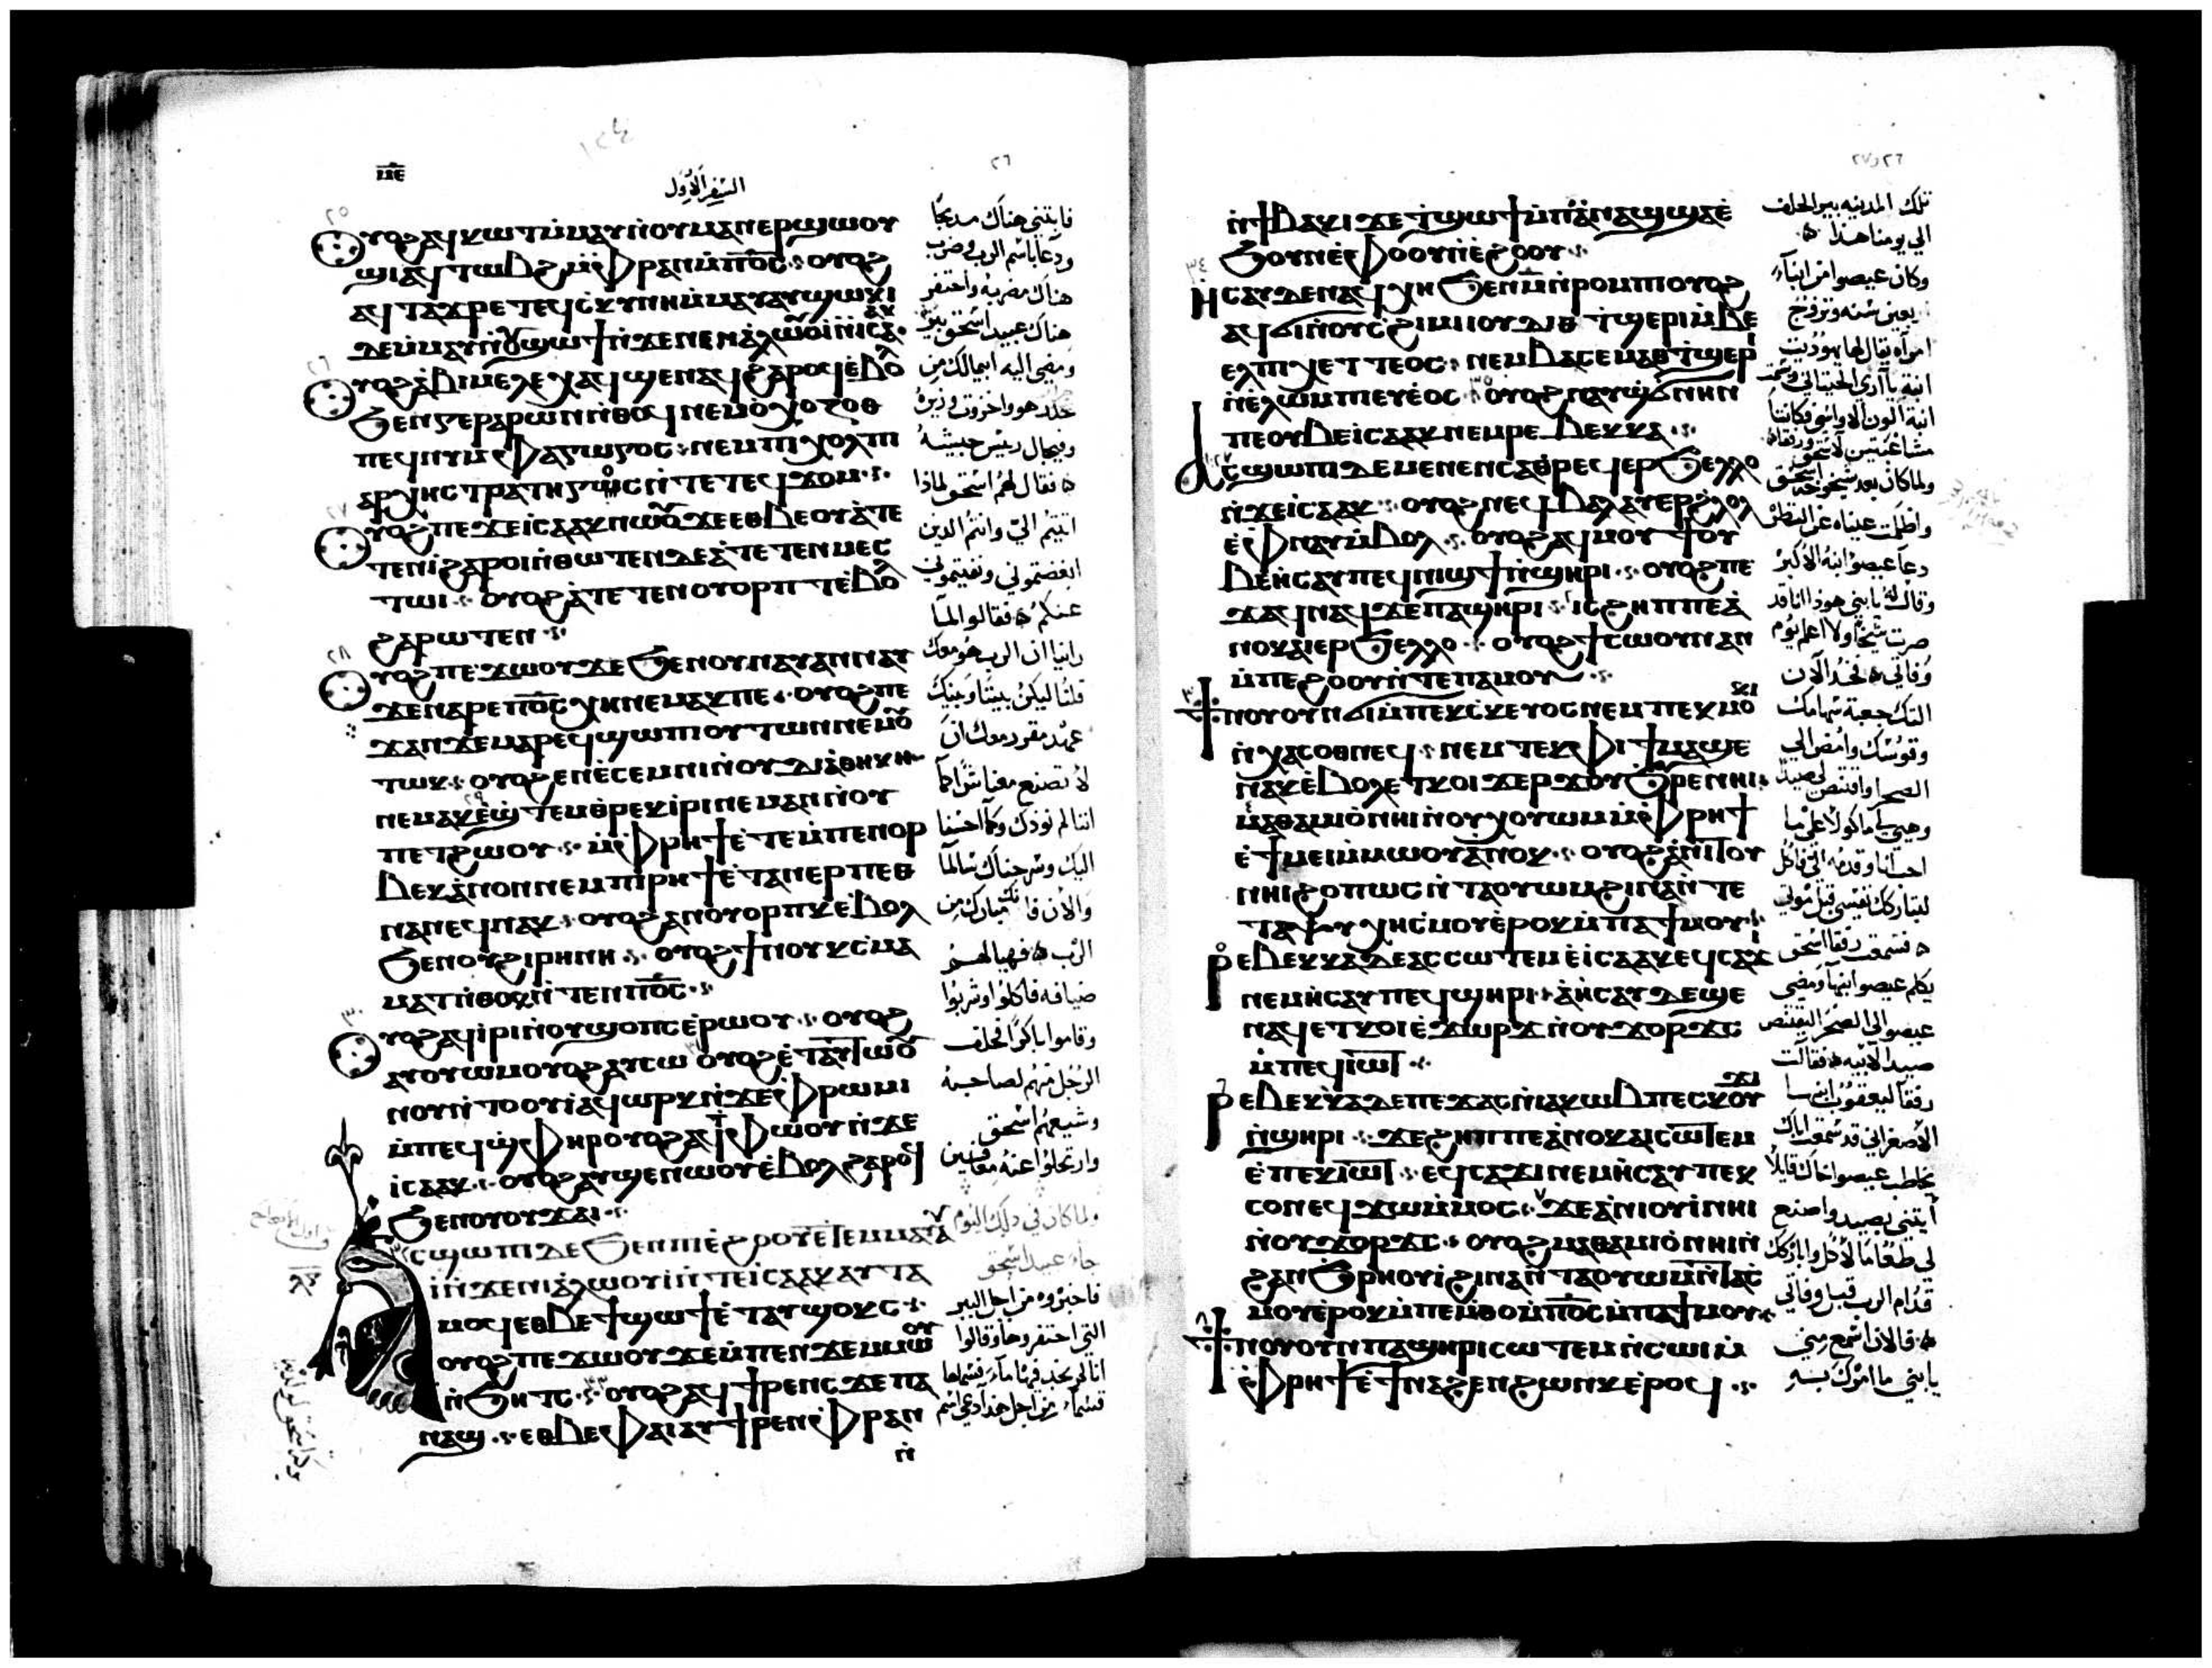 ⲡⲉ
السفر الاول
٢٦
٢٥
ⲟⲩⲟϩ ⲁϥⲕⲱϯ ⲙ̀ⲙⲁⲩ ⲛ̀ⲟⲩⲙⲁⲛⲉⲣϣⲱⲟⲩ
ϣⲓ ⲁϥⲧⲱⲃϩ ⲙ̀ⲫⲣⲁⲛ ⲙ̀ⲡⲟ̅ⲥ̅ ⲟⲩⲟϩ
ⲁϥⲧⲁϫⲣⲉ ⲧⲉϥⲥⲕⲩⲛⲏ ⲙ̀ⲙⲁⲩ ⲁⲩϣⲱⲕⲓ
ⲇⲉ ⲙ̀ⲙⲁⲩ ⲛ̀ⲟⲩϣⲱϯ ⲛ̀ϫⲉ ⲛⲉⲛⲁⲗⲱⲟⲩⲓ ⲛ̀ⲓⲥⲁⲁⲕ
٢٦
ⲟⲩⲟϩ ⲁⲃⲓⲙⲉⲗⲉⲭ ⲁϥϣⲉⲛⲁϥ ϩⲁⲣⲟϥ ⲉ̀ⲃⲟⲗ
ϧⲉⲛ ⲅⲉⲣⲁⲣⲱⲛ ⲛ̀ⲑⲟϥ ⲛⲉⲙ ⲟ̀ⲭⲟⲍⲟⲑ
ⲡⲉϥⲛⲩⲙⲫⲁⲅⲱⲅⲟⲥ ⲛⲉⲙ ⲡⲓⲭⲟⲗⲡ
ⲁⲣⲭⲏⲥⲧⲣⲁⲧⲏⲅⲟⲥ ⲛ̀ⲧⲉ ⲧⲉϥϫⲟⲙ
٢٧
ⲟⲩⲟϩ ⲡⲉϫⲉ ⲓⲥⲁⲁⲕ ⲛⲱⲟⲩ ϫⲉ ⲉⲑⲃⲉⲟⲩ ⲁ̀ⲧⲉ
ⲧⲉⲛⲓ̀ ϩⲁⲣⲟⲓ ⲛ̀ⲑⲱⲧⲉⲛ ⲇⲉ ⲁ̀ⲧⲉⲧⲉⲛⲙⲉⲥ
ⲧⲱⲓ ⲟⲩⲟϩ ⲁ̀ⲧⲉⲧⲉⲛⲟⲩⲟⲣⲡⲧ ⲉ̀ⲃⲟⲗ
ϩⲁⲣⲱⲧⲉⲛ
٢٨
ⲟⲩⲟϩ ⲡⲉϫⲱⲟⲩ ϫⲉ ϧⲉⲛ ⲟⲩⲛⲁⲩ ⲁⲛⲛⲁⲩ
ϫⲉ ⲛⲁⲣⲉ ⲡⲟ̅ⲥ̅ ⲭⲏ ⲛⲉⲙⲁⲕ ⲡⲉ ⲟⲩⲟϩ ⲡⲉ
ϫⲁⲛ ϫⲉ ⲙⲁⲣⲉϥϣⲱⲡⲓ ⲟⲩⲧⲱⲛ ⲛⲉⲙⲟ
ⲧⲱⲕ ⲟⲩⲟϩ ⲉⲛⲉ̀ⲥⲉⲙⲛⲓ ⲛ̀ⲟⲩⲇⲓⲁⲑⲏⲕⲏ
٢٩
ⲛⲉⲙⲁⲕ ⲉ̀ϣⲧⲉⲙⲑⲣⲉⲕⲓ̀ⲣⲓ ⲛⲉⲙⲁⲛ ⲛ̀ⲟⲩ
ⲡⲉⲧϩⲱⲟⲩ ⲙ̀ⲫⲣⲏϯ ⲉ̀ⲧⲉ ⲙ̀ⲡⲉⲛⲟⲣ
ⲃⲉⲕ ⲁ̀ⲛⲟⲛ ⲛⲉⲙ ⲡⲓⲣⲏϯ ⲉ̀ⲧⲁⲛⲉⲣⲡⲉⲑ
ⲛⲁⲛⲉϥ ⲛⲁⲕ ⲟⲩⲟϩ ⲁⲛⲟⲩⲟⲣⲡⲕ ⲉ̀ⲃⲟⲗ
ϧⲉⲛ ⲟⲩϩⲓⲣⲏⲛⲏ ⲟⲩⲟϩ ϯⲛⲟⲩ ⲕⲥⲙⲁ
ⲙⲁⲧ ⲛ̀ⲑⲟⲕ ⲛ̀ⲧⲉⲛ ⲡⲟ̅ⲥ̅
٣٠
ⲟⲩⲟϩ ⲁϥⲓ̀ⲣⲓ ⲛ̀ⲟⲩϣⲟⲡⲥ ⲉ̀ⲣⲱⲟⲩ ⲟⲩⲟϩ
ⲁⲩⲟⲩⲱⲙ ⲟⲩⲟϩ ⲁⲩⲥⲱ ٣١ ⲟⲩⲟϩ ⲉ̀ⲧⲁⲩⲧⲱⲟⲩ
ⲛⲟⲩ ⲛ̀ⲧⲟⲟⲩⲓ̀ ⲁϥⲱⲣⲕ ⲛ̀ϫⲉ ⲫⲣⲱⲙⲓ
ⲙ̀ⲡⲉϥϣⲫⲏⲣ ⲟⲩⲟϩ ⲁϥⲧⲫⲱⲟⲩ ⲛ̀ϫⲉ
ⲓⲥⲁⲁⲕ ⲟⲩⲟϩ ⲁⲩϣⲉⲛⲱⲟⲩ ⲉ̀ⲃⲟⲗ ϩⲁⲣⲟϥ
ϧⲉⲛ ⲟⲩⲟⲩϫⲁⲓ
ⲁⲥϣⲱⲡⲓ ⲇⲉ ϧⲉⲛ ⲡⲓⲉ̀ϩⲟⲟⲩ ⲉ̀ⲧⲉⲙⲙⲁⲩ
ⲓ̀ ⲛ̀ϫⲉ ⲛⲓⲁ̀ⲗⲱⲟⲩⲓ̀ ⲛ̀ⲧⲉ ⲓⲥⲁⲁⲕ ⲁⲩⲧⲁ
ⲙⲟϥ ⲉⲑⲃⲉ ϯϣⲱϯ ⲉ̀ⲧⲁⲩϣⲟⲕⲥ
ⲟⲩⲟϩ ⲡⲉϫⲱⲟⲩ ϫⲉ ⲙ̀ⲡⲉⲛϫⲉⲙ ⲙⲱⲟⲩ
ⲛ̀ϧⲏⲧⲥ ٣٣ ⲟⲩⲟϩ ⲁϥϯⲣⲉⲛⲥ ϫⲉ ⲡⲁ
ⲛⲁϣ ⲉⲑⲃⲉ ⲫⲁⲓ ⲁⲩϯⲣⲉⲛ ⲫⲣⲁⲛ
ⲛ̀
فابتنى هناك مذبحا
ودعا باسم الرب وضرب
هناك مضربه واحتفر
هناك عبيد اسحق بير
ومضى اليه ابيمالك من
جلدر هو واخزوت وزيره
وفيخال رييس جيشه
فقال لهم اسحق لماذا
اتيتم الي وانتم الذين
ابغضتموني ونفيتموني
عنكم فقالوا لما
راينا ان الرب هو معك
قلنا ليكن بيننا وبينك
عهد مقرر معك ان
لا تصنع معنا شرا كما
اننا لم نوذك وكما احسنا
اليك وسرحناك سالما
والان فانك مبارك من
الرب فهيا لهم
ضيافه فاكلوا وشربوا
وقاموا باكرا فحلف
الرجل منهم لصاحبه
وشيعهم اسحق
وارتحلوا عنه معافين
ولما كان في ذلك اليوم
جاء عبيد اسحق
فاخبروه من اجل البير
التي احتفروها وقالوا
انا لم نجد فيها ماء فسماها
٢٦ و٢٧
ⲛ̀ϯⲃⲁⲕⲓ ϫⲉ ϯϣⲱϯ ⲙ̀ⲡⲁ̀ⲛⲁϣ ϣⲁⲉ̀
ϧⲟⲩⲛ ⲉ̀ⲫⲟⲟⲩ ⲛ̀ⲉ̀ϩⲟⲟⲩ
٣٤
ⲏⲥⲁⲩ ⲇⲉ ⲛⲁϥⲭⲏ ϧⲉⲛ ⲙ̅ ⲛ̀ⲣⲟⲙⲡⲓ ⲟⲩⲟϩ
ⲁϥϭⲓ ⲛ̀ⲟⲩⲥϩⲓⲙⲓ ⲓⲟⲩⲇⲓⲑ ⲧϣⲉⲣⲓ ⲙ̀ⲃⲉ
ⲉⲗ ⲡⲓⲭⲉⲧⲧⲉⲟⲥ ⲛⲉⲙ ⲃⲁⲥⲉⲙⲁⲑ ⲧϣⲉⲣⲓ
ⲛ̀ⲉ̀ⲗⲱⲙ ⲡⲉⲩⲉⲟⲥ ٣٥ ⲟⲩⲟϩ ⲛⲁⲩϣϭⲛⲏⲛ
ⲡⲉ ⲟⲩⲃⲉ ⲓⲥⲁⲁⲕ ⲛⲉⲙ ⲣⲉⲃⲉⲕⲕⲁ
ⲁⲥϣⲱⲡⲓ ⲇⲉ ⲙⲉⲛⲉⲛⲥⲁ ⲑⲣⲉϥⲉⲣϧⲉⲗⲗⲟ
ⲛ̀ϫⲉ ⲓⲥⲁⲁⲕ ⲟⲩⲟϩ ⲛⲉϥⲃⲁⲗ ⲁⲩⲉⲣϩⲗⲟⲗ
ⲉ̀ⲫⲛⲁⲩ ⲙ̀ⲃⲟⲗ ⲟⲩⲟϩ ⲁϥⲙⲟⲩϯ ⲟⲩ
ⲃⲉ ⲏⲥⲁⲩ ⲡⲉϥⲛⲓϣϯ ⲛ̀ϣⲏⲣⲓ ⲟⲩⲟϩ ⲡⲉ
ϫⲁϥ ⲛⲁϥ ϫⲉ ⲡⲁϣⲏⲣⲓ ٢ ⲓⲥ ϩⲏⲡⲡⲉ ⲁ̀
ⲛⲟⲕ ⲁⲓⲉⲣϧⲉⲗⲗⲟ ⲟⲩⲟϩ ϯⲥⲱⲟⲩⲛ ⲁⲛ
ⲙ̀ⲡⲉϩⲟⲟⲩ ⲛ̀ⲧⲉ ⲡⲁⲙⲟⲩ
٣
ϯⲛⲟⲩ ⲟⲩⲛ ϭⲓ ⲙ̀ⲡⲉⲕⲥⲕⲉⲩⲟⲥ ⲛⲉⲙ ⲡⲉⲕⲙⲟ
ⲛ̀ⲭⲁⲥⲟⲑⲛⲉϥ ⲛⲉⲙ ⲧⲉⲕⲫⲓϯ ⲙⲁϣⲉ
ⲛⲁⲕ ⲉ̀ⲃⲟⲗ ⲉⲧⲕⲟⲓ ϫⲉⲣϫ ⲟⲩϧⲣⲉ ⲛⲏⲓ
٤
ⲙⲁⲑⲁⲙⲓⲟ̀ ⲛⲏⲓ ⲛ̀ⲟⲩϭⲟⲩⲱⲙ ⲙ̀ⲫⲣⲏϯ
ⲉ̀ϯⲙⲉⲓ ⲙ̀ⲙⲱⲟⲩ ⲁ̀ⲛⲟⲕ ⲟⲩⲟϩ ⲁ̀ⲛⲓⲧⲟⲩ
ⲛⲏⲓ ϩⲟⲡⲱⲥ ⲛ̀ⲧⲁⲟⲩⲱⲙ ϩⲓⲛⲁ ⲛ̀ⲧⲉ
ⲧⲁⲯⲩⲭⲏ ⲥⲙⲟⲩ ⲉ̀ⲣⲟⲕ ⲙ̀ⲡⲁϯⲙⲟⲩ
٥
ⲣⲉⲃⲉⲕⲕⲁ ⲇⲉ ⲁⲥⲥⲱⲧⲉⲙ ⲉ̀ⲓⲥⲁⲁⲕ ⲉϥⲥⲁϫⲓ
ⲛⲉⲙ ⲏⲥⲁⲩ ⲡⲉϥϣⲏⲣⲓ ⲁ̀ⲏⲥⲁⲩ ⲇⲉ ϣⲉ
ⲛⲁϥ ⲉⲧⲕⲟⲓ ⲉ̀ϫⲱⲣϫ ⲛ̀ⲟⲩϫⲟⲣϫⲥ
ⲙ̀ⲡⲉϥⲓⲱⲧ
٦
ⲣⲉⲃⲉⲕⲕⲁ ⲇⲉ ⲡⲉϫⲁⲥ ⲛ̀ⲓⲁⲕⲱⲃ ⲡⲉⲥⲕⲟⲩϫⲓ
ⲛ̀ϣⲏⲣⲓ ϫⲉ ϩⲏⲡⲡⲉ ⲁ̀ⲛⲟⲕ ⲁⲓⲥⲱⲧⲉⲙ
ⲉ̀ⲡⲉⲕⲓⲱⲧ ⲉϥⲥⲁϫⲓ ⲛⲉⲙ ⲏⲥⲁⲩ ⲡⲉⲕ
ⲥⲟⲛ ⲉϥϫⲱ ⲙ̀ⲙⲟⲥ ٧ ϫⲉ ⲁ̀ⲛⲓⲟⲩⲓ̀ ⲛⲏⲓ
ⲛ̀ⲟⲩϫⲟⲣϫⲥ ⲟⲩⲟϩ ⲙⲁⲑⲁⲙⲓⲟ̀ ⲛⲏⲓ ⲛ̀
ϩⲁⲛϧⲣⲏⲟⲩⲓ̀ ϩⲓⲛⲁ ⲛ̀ⲧⲁⲟⲩⲱⲙ ⲛ̀ⲧⲁⲥ
ⲙⲟⲩ ⲉ̀ⲣⲟⲕ ⲙ̀ⲡⲉⲙⲑⲟ ⲙ̀ⲡⲟ̅ⲥ̅ ⲙ̀ⲡⲁϯⲙⲟⲩ
٨
ϯⲛⲟⲩ ⲟⲩⲛ ⲡⲁϣⲏⲣⲓ ⲥⲱⲧⲉⲙ ⲛ̀ⲥⲱⲓ ⲙ̀
ⲫⲣⲏϯ ⲉ̀ϯⲛⲁϩⲉⲛϩⲱⲛⲕ ⲉ̀ⲣⲟϥ
تلك المدينه بير الحلف
الي يومنا هذا
وكان عيصوا من ابناء
اربعين سنه وتزوج
امراه يقال لها يهوديت
ابنة باآري الحيتاني وبسمت
ابنة آلون الاواسي فكانتا
مشاغبتين لاسحق ورفقا
ولما كان بعد شيخوخة اسحق
واظلمت عيناه عن النظر
دعا عيصوا ابنه الاكبر
وقال له يا بني هوذا انا قد
صرت شيخا ولا اعلم يوم
وفاتي فخذ الآن
التك جعبة سهامك
وقوسك وامض الي
الصحرا واقتنص لي صيدا
احب انا وقدمه الي فاكل
لتباركك نفسي قبل موتي
فسمعت رفقا اسحق
يكلم عيصوا ابنها ومضى
عيصوا الي الصحرا ليقتنص
صيدا لابيه فقالت
رفقا ليعقوب ابنها
الاصغر اني قد سمعت اباك
يخاطب عيصوا اخاك قايلا
آيتني بصيد واصنع
لي طعاما لاكل واباركك
قدام الرب قبل وفاتي
فالان اسمع مني
يا بني ما امرك به